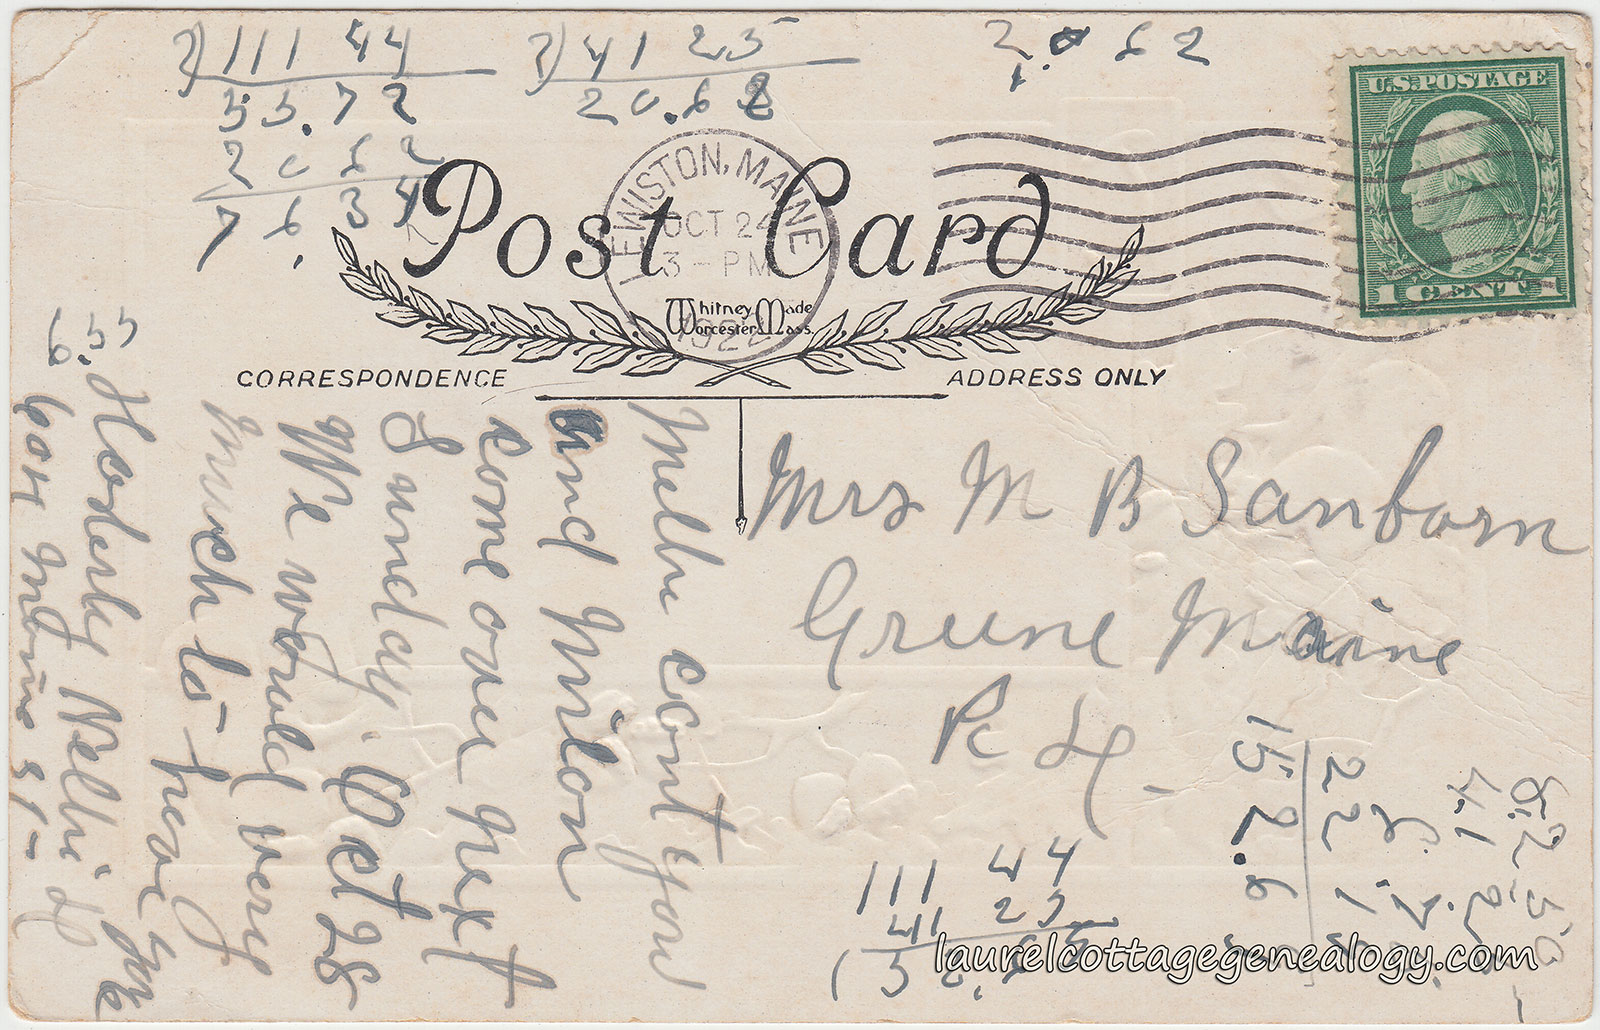 2) 111 44
55.72
20 62
76.34
2) 41 25
20.62
20.62
U.S. POSTAGE
1 CENT 1
LEWISTON, MAINE
OCT 24
3 - PM
1922
Post Card
Whitney Made
Worcester Mass.
CORRESPONDENCE
ADDRESS ONLY
Mellie cont you
and Milon
come over next
Sunday. Oct 28
We would very
much to have you
Hoderley Nelli
box
6.55
Mrs M B Sanborn
Greene Maine
R
82.50
41.2
22
152.6
111 44
41 25
laurelcottagegenealogy.com